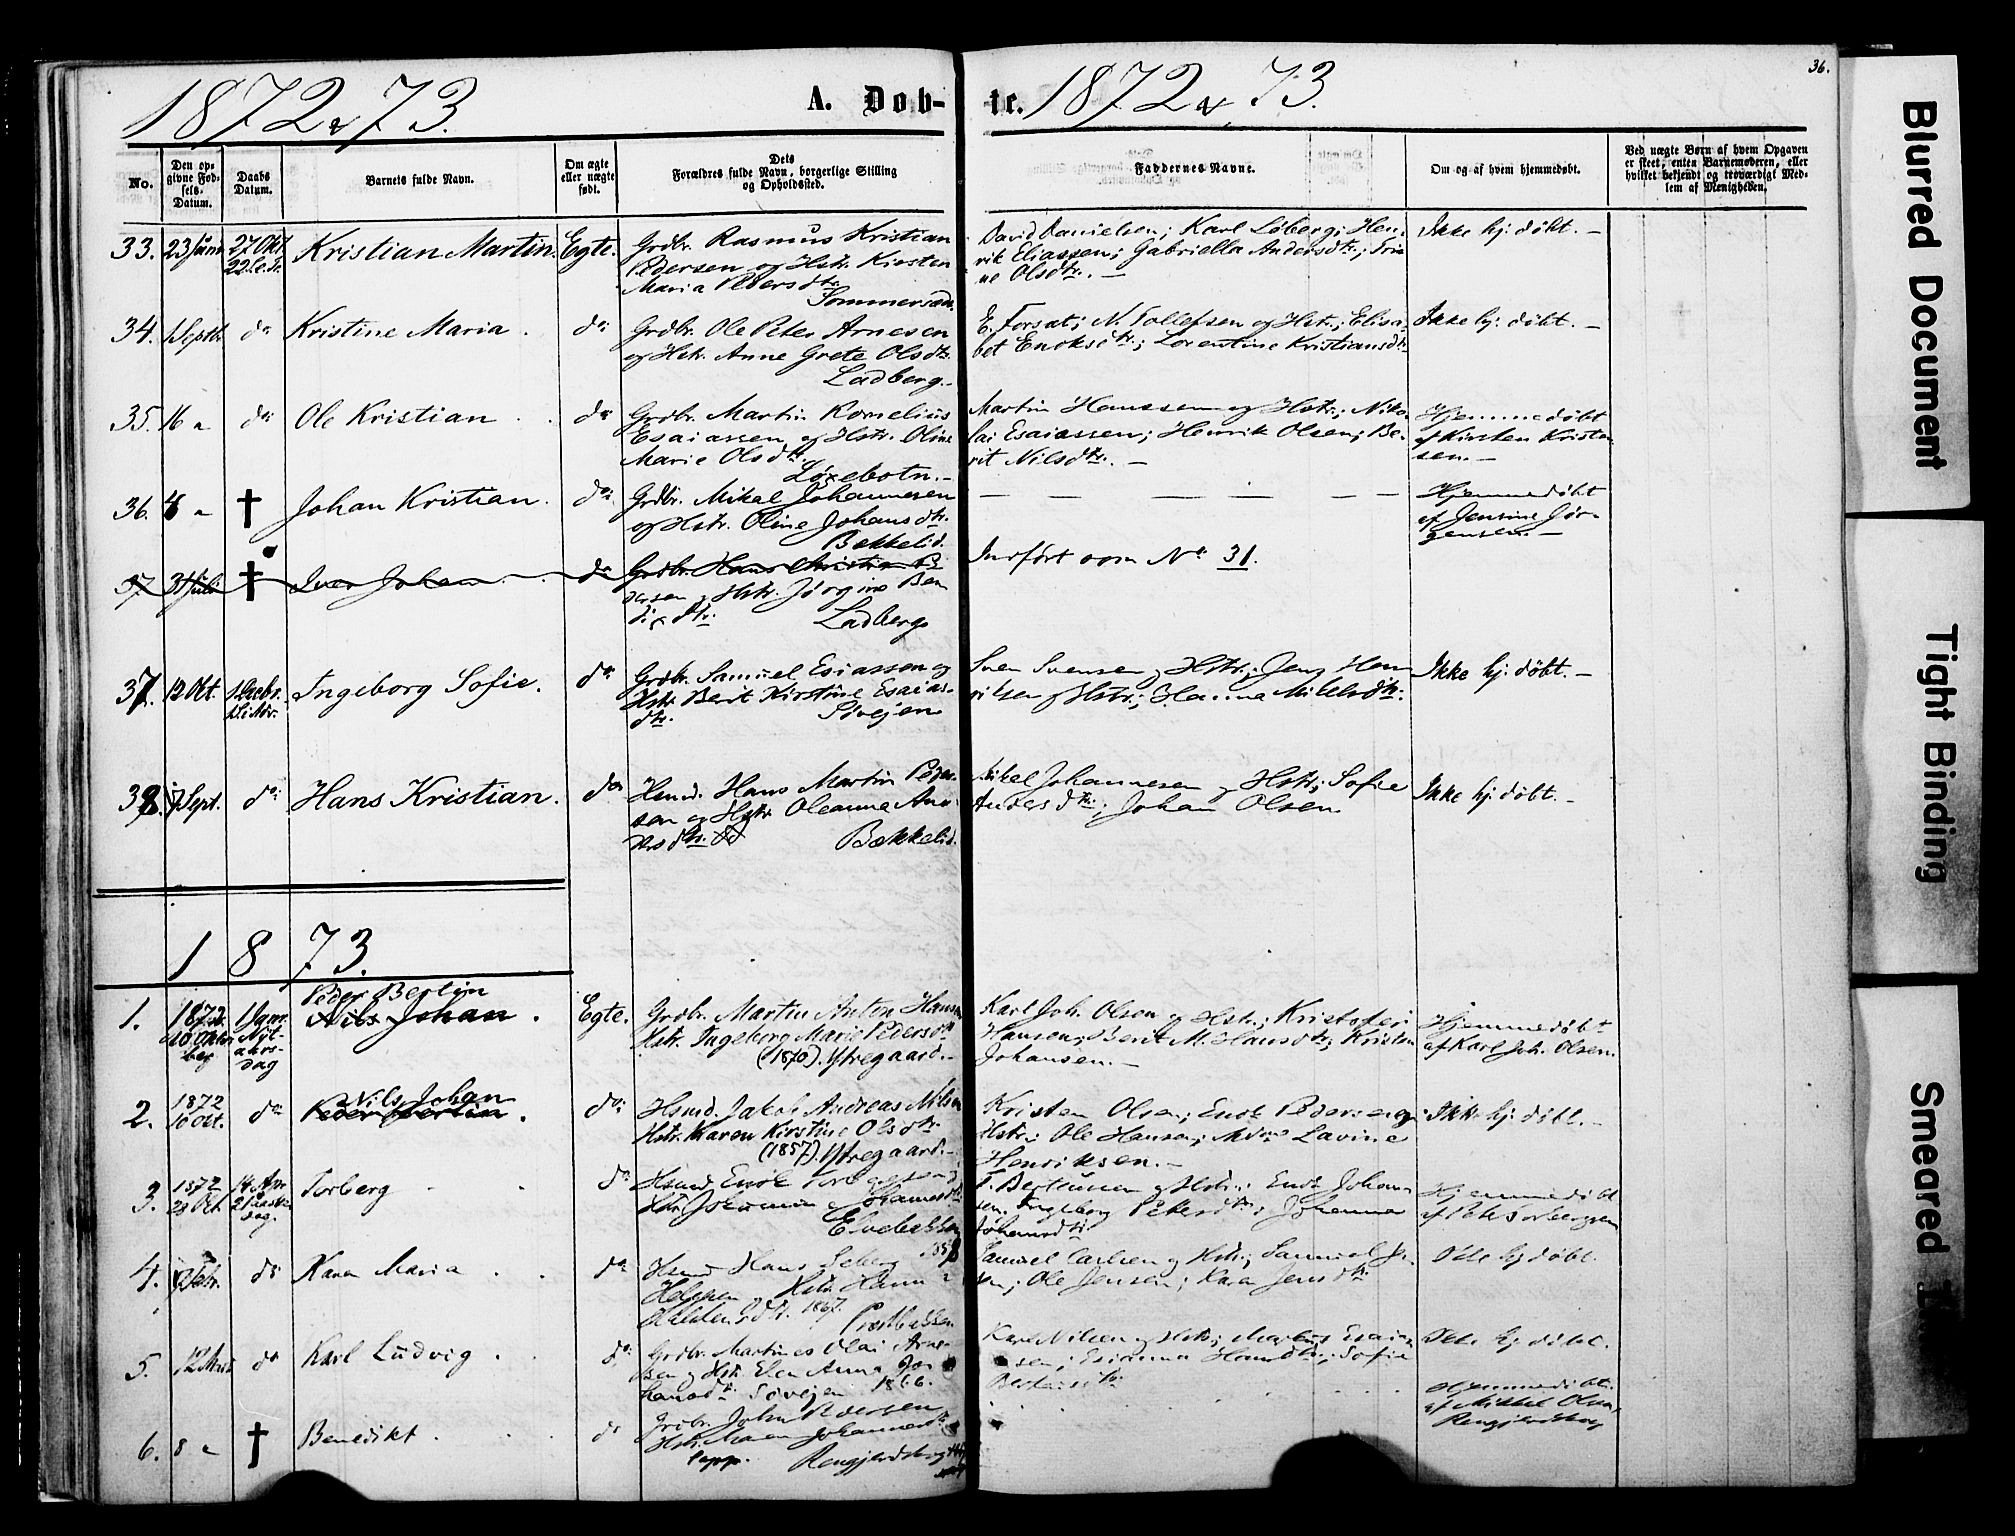 1872 & 73.
A. Døb-
te. 1872 & 73.
36.
No.
Den op-
givne Fød-
sels-
Datum.
Daabs
Datum.
Barnets fulde Navn.
Om ægte
eller uægte
født.
Dets
Forældres fulde Navn, borgerlige Stilling
og Opholdssted.
Faddernes Navne.
Om og af hvem hjemmedøbt.
Ved uægte Børn af hvem Opgaven
er skeet, enten Barnemoderen, eller
hvilket bekjendt og troværdigt Med-
lem af Menigheden.
33. 23 Juni 27 Okt. Kristian Martin. Egte. Grdbr. Rasmus Kristian
Pedersen og Hstr. Kirsten
Maria Pedersdtr.
Sommersæt.
David Danielsen; Karl Løberg; Hen-
rik Eliassen; Gabriella Andersdtr.; Tri-
ne Olsdtr. —
Ikke hj. døbt. —
34. 1 Septbr. do Kristine Maria. do Grdbr. Ole Peter Arnesen
og Hstr. Anne Grete Olsdtr.
Ladberg. —
E. Forsæt; N. Tollefsen og Hstr.; Elisa-
bet Enoksdtr.; Lorentine Kristiansdtr.
Ikke hj. døbt. —
35. 16 " do Ole Kristian do Grdbr. Martin Kornelius
Esaiassen og Hstr. Oline
Marie Olsdtr.
Løxebotn. —
Martin Hanssen og Hstr.; Niko-
lai Esaiassen; Henrik Olsen; Be-
rit Nilsdtr. —
Hjemmedøbt
af Kirsten Kristen-
sen. —
36. " † Johan Kristian. do. Grdbr. Mikal Johannesen
og Hstr. Oline Johansdtr.
Bækkelid.
Hjemmedøbt
af Jensine Jør-
gensen. —
37 31 Juli † Iver Johan do Grdbr. Hans Kristian Pe-
dersen og Hstr. Jørgine Ben-
dixdtr. Ladberg
Indført som No 31.
37. 12 Okt. 1 Decbr. Ingeborg Sofie. do Grdbr. Samuel Esiassen og
Hstr. Berit Kirstine Esaias-
dtr. Sivejen
Sven Svensen og Hstr.; Jens Hen-
riksen og Hstr.; Hanna Mikelsdtr.
Ikke hj. døbt. —
38. 7 Sept. do Hans Kristian. do Hsmd. Hans Martin Peder-
sen og Hstr. Oleanna An-
dersdtr. Bækkelid.
Mikel Johannesen og Hstr.; Sofie
Andersdtr.; Johan Olsen
Ikke hj. døbt. —
1873.
1. 1872 Peder Bertin
Nils Johan. Egte. Grdbr. Martin Anton Hansen
1 Jan. Nyt-
aars-
dag
Hstr. Ingeborg Marie Pedersdtr
(1870). Ytregaard. —
Karl Joh. Olsen og Hstr.; Kristofer
Hansen; Berit M. Hansdtr; Kristen
Johansen. —
Hjemmedøbt
af Karl Joh. Olsen.
2. 1872
16 Okt. do Nils Johan
Peder Bertin. do. Hsmd. Jakob Andreas Nilsen
Hstr. Karen Kirstine Olsdtr.
(1857). Ytregaard. —
Kristen Olsen; Enok Pedersen og
Hstr.; Ole Hansen; Lavine
Henriksen. —
Ikke hj. døbt. —
3. 1872
23 Okt. 14 Apr.
2 Paaske-
dag. Torberg do Hsmd. Enok Torbergsen
Elvebakken
Bertinussen og Hstr.; Enok Johan-
sen. Ingeborg Petersdtr; Johanna
Johansdtr
Hjemmedøbt
af Peter Torbergsen
4. Febr. do Karen Maria do Hsmd Hans Seberg
Helgesen og Hstr. Hanna
1867. Præstbakken
Samuel Carlsen og Hstr.; Samuel Jen-
sen; Ole Jensen; Kaia Jensdtr.
Ikke hj døbt.
5. 12 do Karl Ludvig do Grdbr. Martines Olai Arne-
sen og Hstr. Elen Anna Jo-
hansdtr. Sivejen 1866.
Karl Nilsen og Hstr.; Markus Esaias-
sen; Hansdtr.; Sofie
Ikke hj. døbt.
6. 8 " † Benedikt. do Grdbr. John Pedersen
Hstr. Maren Johannesdtr
Lapp. Rengjerdskog
Hjemmedøbt
af Mikkel Olsen,
Rengjerdskog
Blurred Document
Tight Binding
Smeared